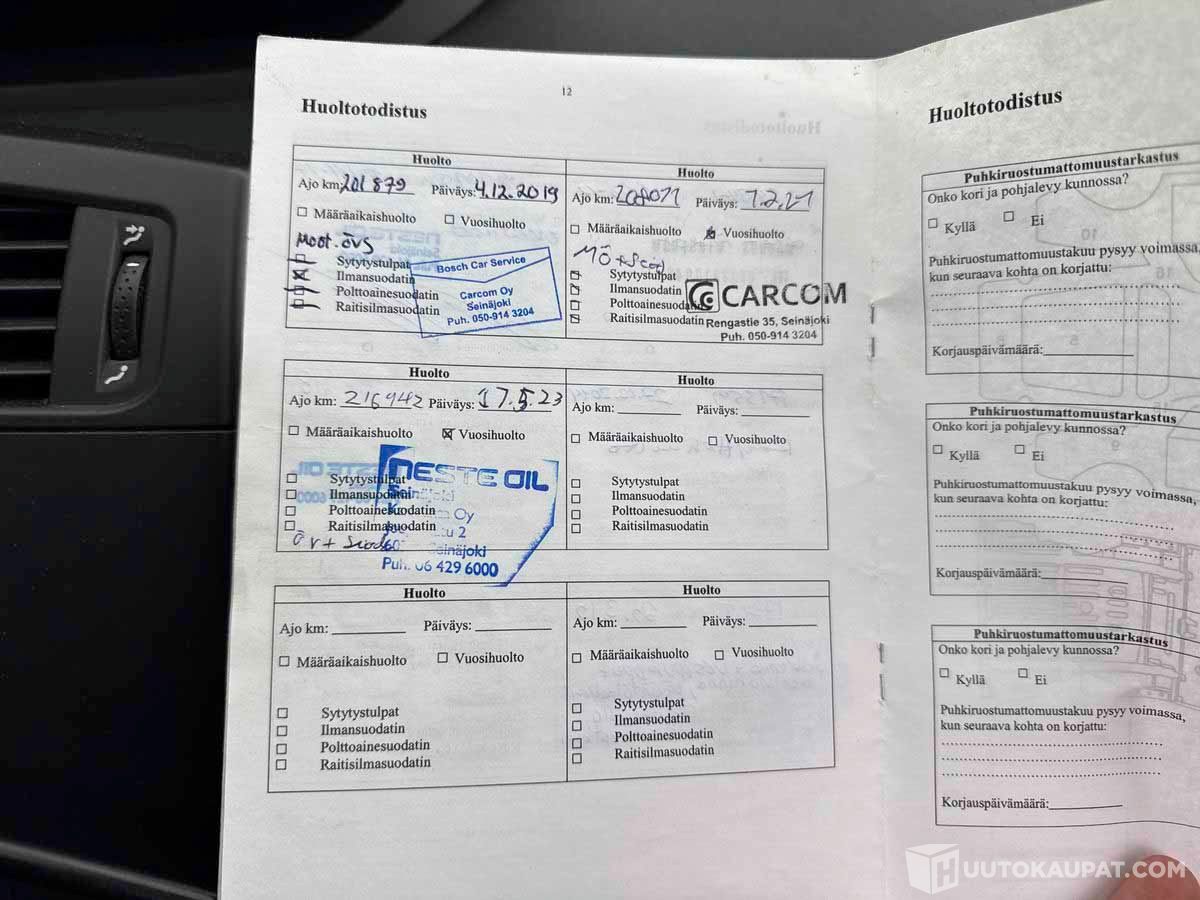 12
Huoltotodistus
Huolto
Ajo km: 201 879 Päiväys: 4.12.2019
Määräaikaishuolto Vuosihuolto
Moot. övs
Sytytystulpat
Ilmansuodatin
Polttoainesuodatin
Raitisilmasuodatin
Bosch Car Service
Carcom Oy
Seinäjoki
Puh. 050-914 3204
Huolto
Ajo km: 208071 Päiväys: 1.2.21
Määräaikaishuolto Vuosihuolto
Sytytystulpat
Ilmansuodatin
Polttoainesuodatin
Raitisilmasuodatin
CARCOM
Rengastie 35, Seinäjoki
Puh. 050-914 3204
Huolto
Ajo km: 216942 Päiväys: 17.5.23
Määräaikaishuolto Vuosihuolto
Sytytystulpat
Ilmansuodatin
Polttoainesuodatin
Raitisilmasuodatin
NESTE OIL
Seinäjoki
Oy
2
Seinäjoki
Puh. 06 429 6000
Huolto
Ajo km: Päiväys:
Määräaikaishuolto Vuosihuolto
Sytytystulpat
Ilmansuodatin
Polttoainesuodatin
Raitisilmasuodatin
Huolto
Ajo km: Päiväys:
Määräaikaishuolto Vuosihuolto
Sytytystulpat
Ilmansuodatin
Polttoainesuodatin
Raitisilmasuodatin
Huolto
Ajo km: Päiväys:
Määräaikaishuolto Vuosihuolto
Sytytystulpat
Ilmansuodatin
Polttoainesuodatin
Raitisilmasuodatin
Huoltotodistus
Puhkiruostumattomuustarkastus
Onko kori ja pohjalevy kunnossa?
Kyllä Ei
Puhkiruostumattomuustakuu pysyy voimassa,
kun seuraava kohta on korjattu:
Korjauspäivämäärä:
Puhkiruostumattomuustarkastus
Onko kori ja pohjalevy kunnossa?
Kyllä Ei
Puhkiruostumattomuustakuu pysyy voimassa,
kun seuraava kohta on korjattu:
Korjauspäivämäärä:
Puhkiruostumattomuustarkastus
Onko kori ja pohjalevy kunnossa?
Kyllä Ei
Puhkiruostumattomuustakuu pysyy voimassa,
kun seuraava kohta on korjattu:
Korjauspäivämäärä:
HUUTOKAUPAT.COM